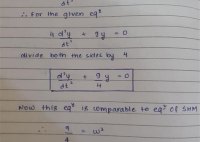 dt²
∴ For the given eqⁿ
4 d²y + 9y = 0
dt²
divide both the sides by 4
d²y + 9 y = 0
dt² 4
Now this eqⁿ is comparable to eqⁿ of SHM
∴ 9 = ω²
4